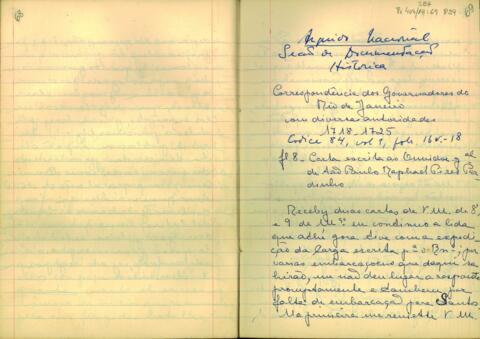 Arquivo Nacional
Secão de Documentação
Historica
Correspondência dos Governadores do
Rio de Janeiro
com diversas autoridades
1718-1725
Codice 84, vol 1, fols 16v.-18
fl 8- Carta escrita ao Ouvidor g.al
de São Paulo Raphael Pires Par
dinho.
Receby duas cartas de V.M. de 8,
e 9 de M.ço em condinuo a lida
que athé gora tive com a expedi
ção da larga escrita p.a o Rn.o; por
varias embarcaçoens que daqui sa
hirão, me não deu lugar a resposta
promptamente e tambem por
falta de embarcaçaõ para Santos
Na primeira me remette V.M.